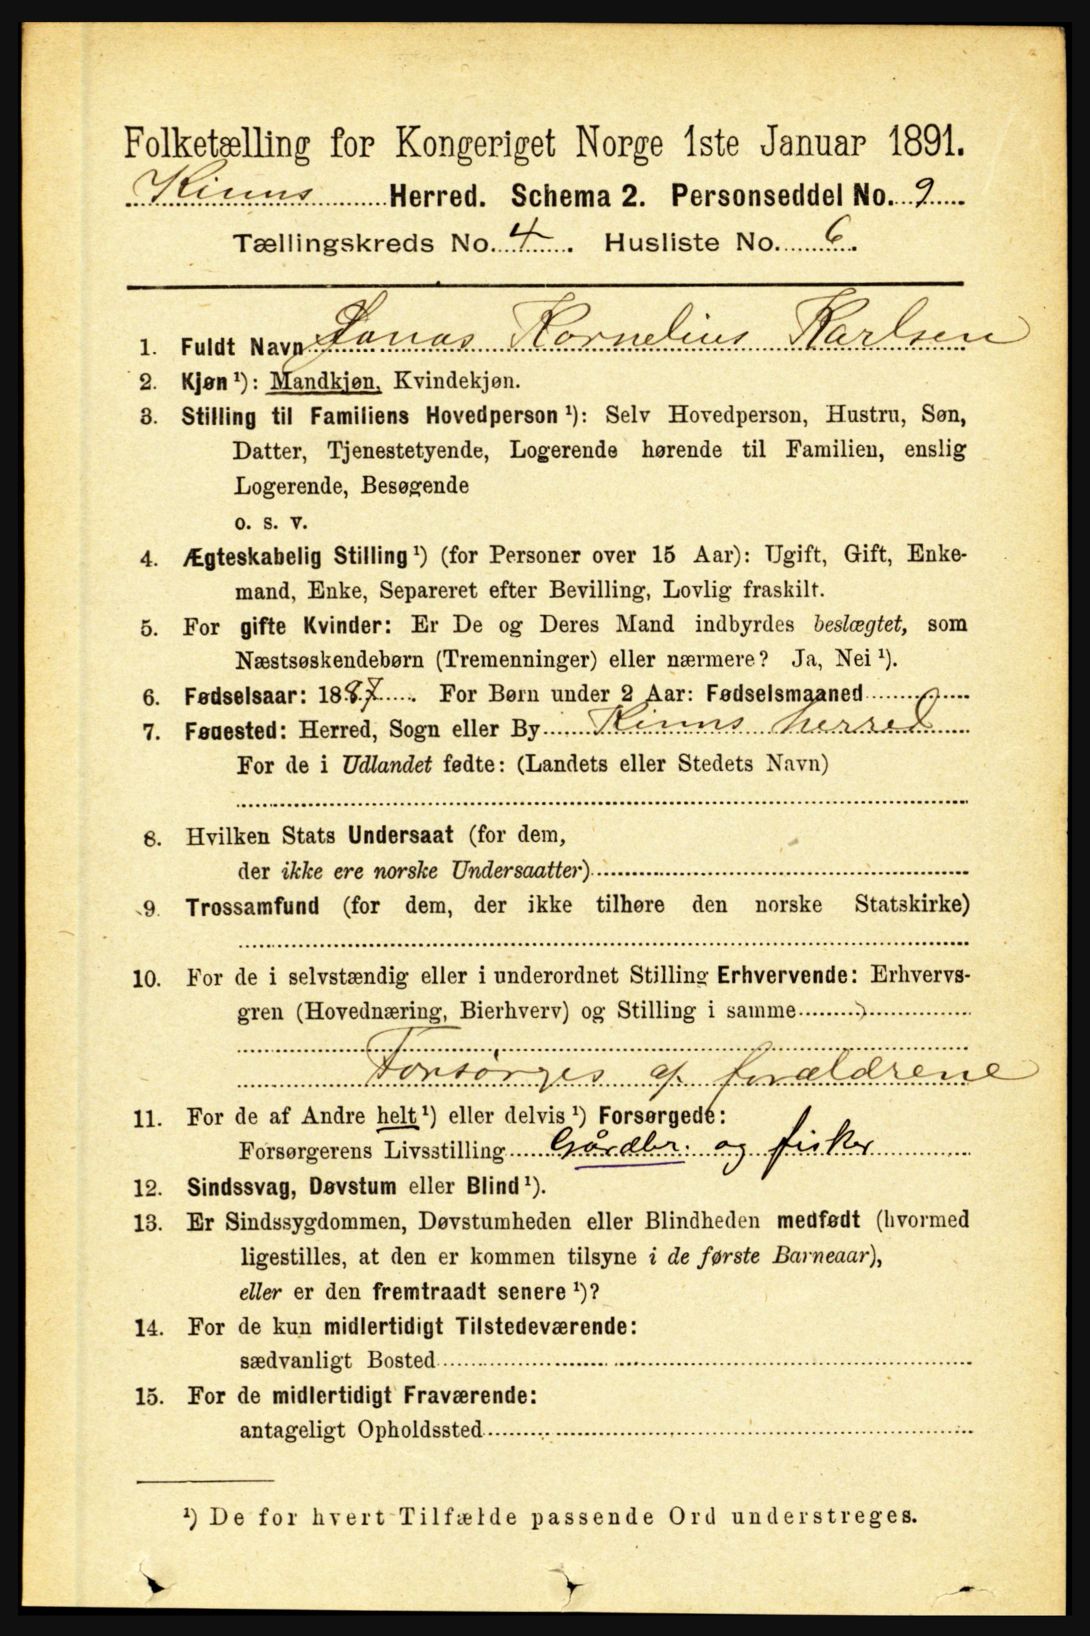 Folketælling for Kongeriget Norge 1ste Januar 1891.
Kinns Herred. Schema 2. Personseddel No. 9
Tællingskreds No. 4. Husliste No. 6.
1. Fuldt Navn Jonas Kornelius Karlsen
2. Kjøn ¹): Mandkjøn, Kvindekjøn.
3. Stilling til Familiens Hovedperson ¹): Selv Hovedperson, Hustru, Søn,
Datter, Tjenestetyende, Logerende hørende til Familien, enslig
Logerende, Besøgende
o. s. v.
4. Ægteskabelig Stilling ¹) (for Personer over 15 Aar): Ugift, Gift, Enke-
mand, Enke, Separeret efter Bevilling, Lovlig fraskilt.
5. For gifte Kvinder: Er De og Deres Mand indbyrdes beslægtet, som
Næstsøskendebørn (Tremenninger) eller nærmere? Ja, Nei ¹).
6. Fødselsaar: 1887. For Børn under 2 Aar: Fødselsmaaned
7. Fødested: Herred, Sogn eller By Kinns herred
For de i Udlandet fødte: (Landets eller Stedets Navn)
8. Hvilken Stats Undersaat (for dem,
der ikke ere norske Undersaatter)
9. Trossamfund (for dem, der ikke tilhøre den norske Statskirke)
10. For de i selvstændig eller i underordnet Stilling Erhvervende: Erhvervs-
gren (Hovednæring, Bierhverv) og Stilling i samme
Forsørges af forældrene
11. For de af Andre helt ¹) eller delvis ¹) Forsørgede:
Forsørgerens Livsstilling Gårdbr. og fisker
12. Sindssvag, Døvstum eller Blind ¹).
13. Er Sindssygdommen, Døvstumheden eller Blindheden medfødt (hvormed
ligestilles, at den er kommen tilsyne i de første Barneaar),
eller er den fremtraadt senere ¹)?
14. For de kun midlertidigt Tilstedeværende:
sædvanligt Bosted
15. For de midlertidigt Fraværende:
antageligt Opholdssted
¹) De for hvert Tilfælde passende Ord understreges.